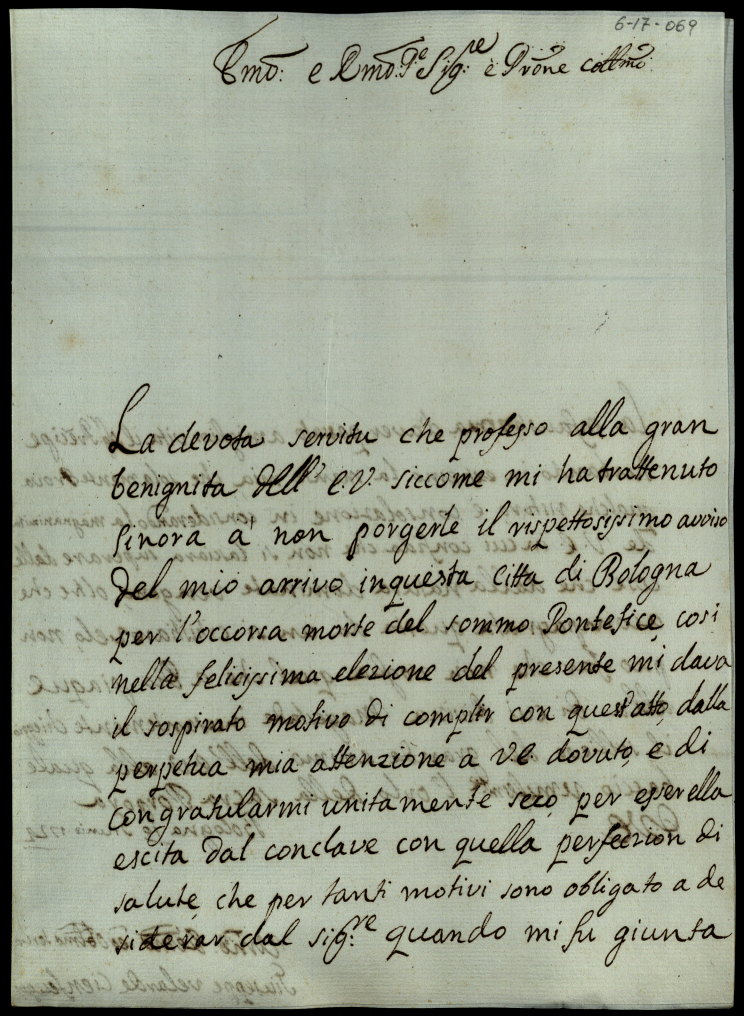 6-17-069
Emo: e Rmo: Pe Sigre: e Prone collmo:
La devota servitu che professo alla gran
benignita dell' E.V. siccome mi ha trattenuto
sinora a' non porgerle il rispettosissimo avviso
del mio arrivo in questa citta di Bologna
per l'occorsa morte del sommo Pontefice, cosi
nella felicissima elezione del presente mi dava
il sospirato motivo di complir con quest'atto, dalla
perpetua mia attenzione a V.E. dovuto, e di
congratularmi unitamente seco, per esser ella
escita dal conclave con quella perfeczion di
salute, che per tanti motivi sono obligato a de
siderar dal sigre: quando mi fu giunta